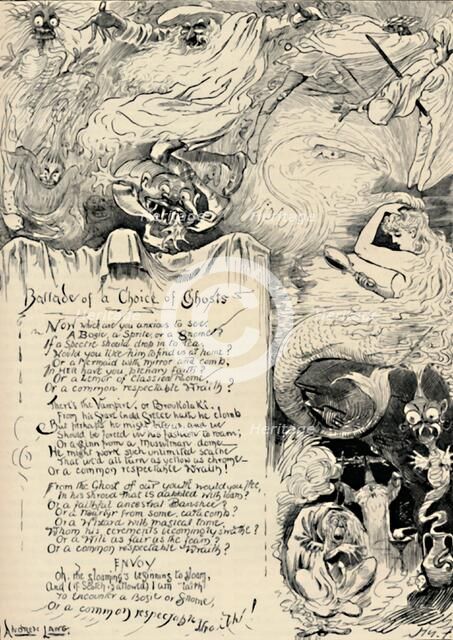 Ballade of a Choice of Ghosts
Now which are you anxious to see:
A Bogie, a Sprite, or a Gnome?
If a Spectre should drop in to tea,
Would you like him to find us at home?
Or a Mermaid with mirror and comb,
In HER have you plenary faith?
Or a Lemur of classical Rome,
Or a common respectable Wraith?
There's the Vampire, or Broukolaki,
From his in Greece hath he clomb
But perhaps he might bite us, and we
Should be forced in his fashion to roam;
Or a Djinn from a Musulman dome
He might work such unlimited scathe
That we'd all turn as yellow as chrome
Or a common respectable Wraith!
From the Ghost of our youth would you flee,
In his shroud that is dabbled with loam?
Or a faithful ancestral Banshee?
Or a Martyr from some catacomb?
Or a Wizard with magical tome
Whom his cerements becomingly swathe?
Or a Wili as fair as the foam?
Or a common respectable Wraith?
ENVOY
Oh, the gloaming's beginning to gloam,
And (if speech is allowed) I am
To encounter a Bogie or Gnome,
Or a common respectable Wraith!
ANDREW LANG.
Heritage
Heritage
Heritage
Heritage
Heritage
Heritage